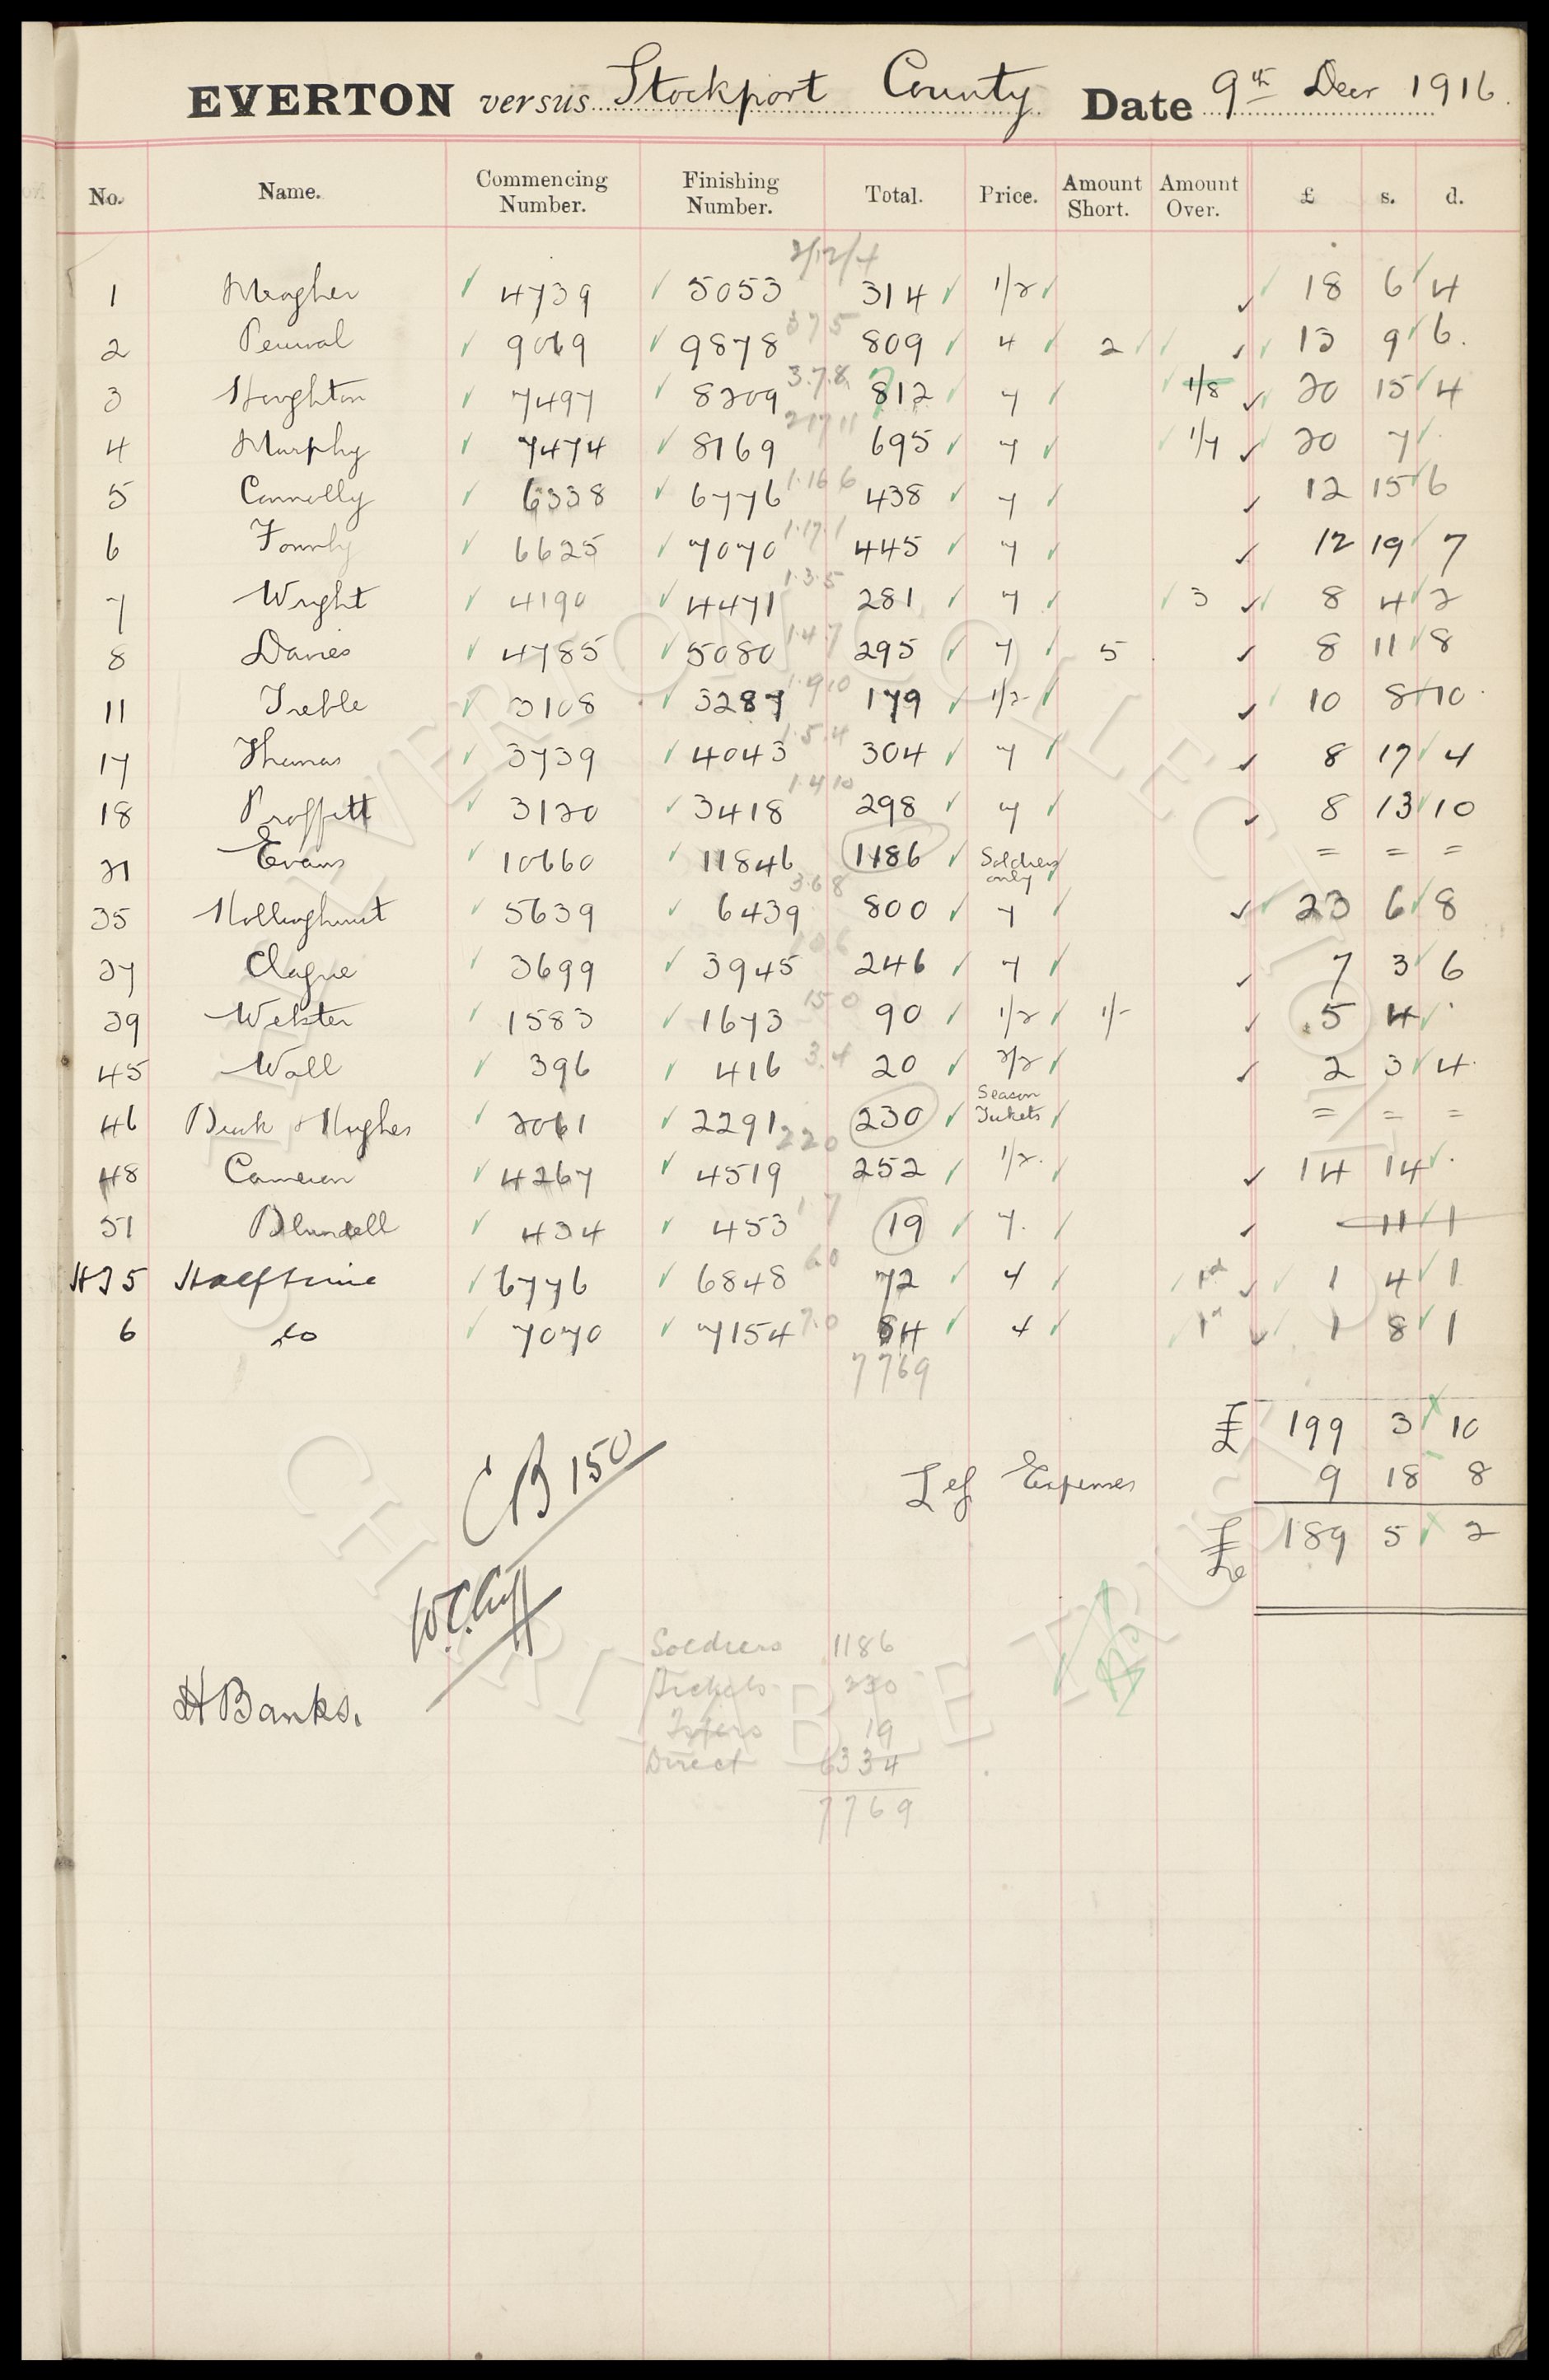 EVERTON versus Stockport County Date 9th Decr 1916.
No. Name. Commencing Number. Finishing Number. Total. Price. Amount Short. Amount Over. £ s. d.
2/12/4
1 Meagher 4739 5053 314 1/2 18 6 4
3 7 5
2 Percival 9069 9878 809 4 2 13 9 6.
3.7.8
3 Houghton 7497 8209 812 7 1/8 20 15 4
2 17 11
4 Murphy 7474 8169 695 7 1/7 20 7
1.16 6
5 Connolly 6338 6776 438 7 12 15 6
1.17.1
6 Formby 6625 7070 445 7 12 19 7
1.3.5
7 Wright 4190 4471 281 7 3 8 4 2
1.4.7
8 Davies 4785 5080 295 7 5 8 11 8
1.9 10
11 Treble 3108 3287 179 1/2 10 8 10
1.5.4
17 Thomas 3739 4043 304 7 8 17 4
1.4 10
18 Proffitt 3120 3418 298 7 8 13 10
21 Evans 10660 11846 1186 Soldiers only = = =
3 6 8
35 Hollinghurst 5639 6439 800 7 23 6 8
1 0 6
37 Clague 3699 3945 246 7 7 3 6
15 0
39 Webster 1583 1673 90 1/2 1/- 5 4
3.4
45 Wall 396 416 20 2/2 2 3 4.
46 Buck & Hughes 2061 2291 230 Season Tickets = = =
2 2 0
48 Cameron 4267 4519 252 1/2. 14 14
1.7
51 Blundell 434 453 19 7. 11 1
6.0
HT 5 Half time 6776 6848 72 4 1d 1 4 1
7.0
6 do 7070 7154 84 4 1d 1 8 1
7769
£ 199 3 10
CB 150
Less Expenses 9 18 8
£ 189 5 2
W.C. Cuff
Soldiers 1186
Tickets 230
Tsfers 19
Direct 6334
7769
H Banks.
EVERTON COLLECTION
CHARITABLE TRUST